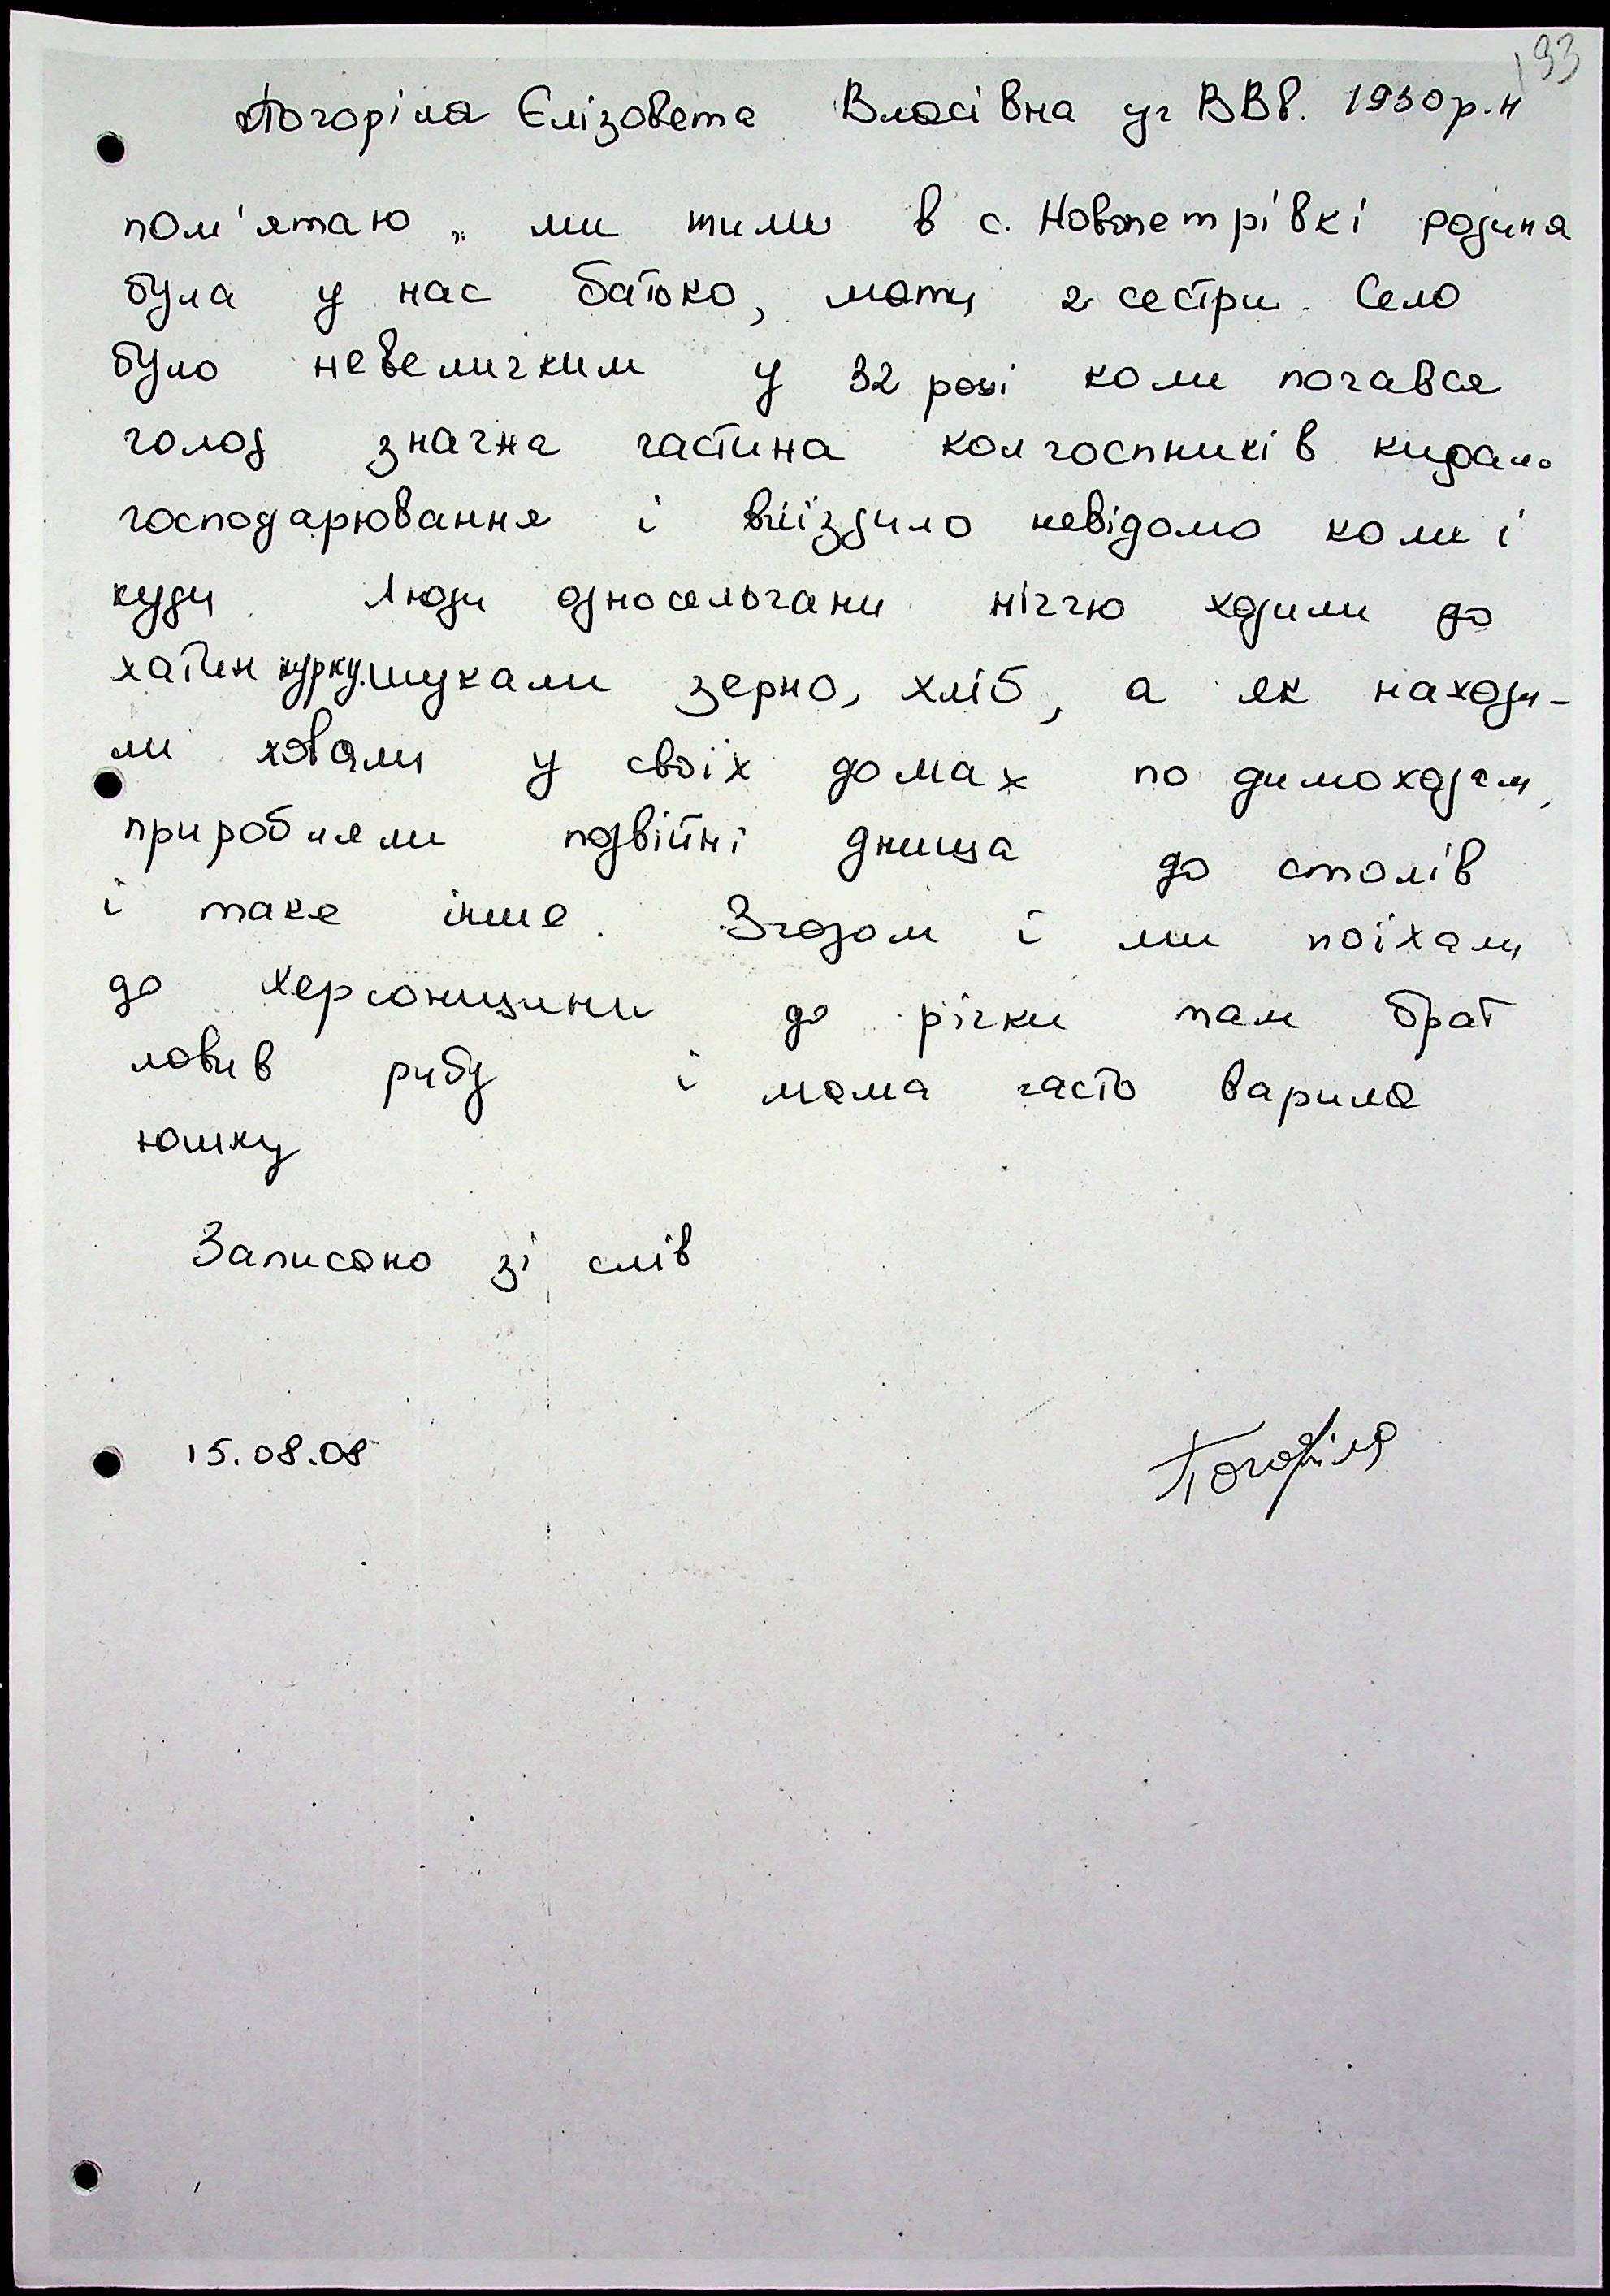 193
Погоріла Єлізовета Власівна уч ВВв. 1930 р.н
пам'ятаю „ ми жили в с. Новопетрівкі родина
була у нас батько, мати 2 сестри. Село
було невеличким у 32 році коли почався
голод значна частина колгоспників кидало
господарювання і виїздило невідомо коли і
куди. Люди односельчани ніччю ходили до
хатин курку. шукали зерно, хліб, а як находи-
ли ховали у своїх домах по димоходам,
приробляли подвійні днища до столів
і таке інше. Згодом і ми поїхали
до Херсонщини до річки там брат
ловив рибу і мама часто варила
юшку
Записано зі слів
15.08.08
Погоріла